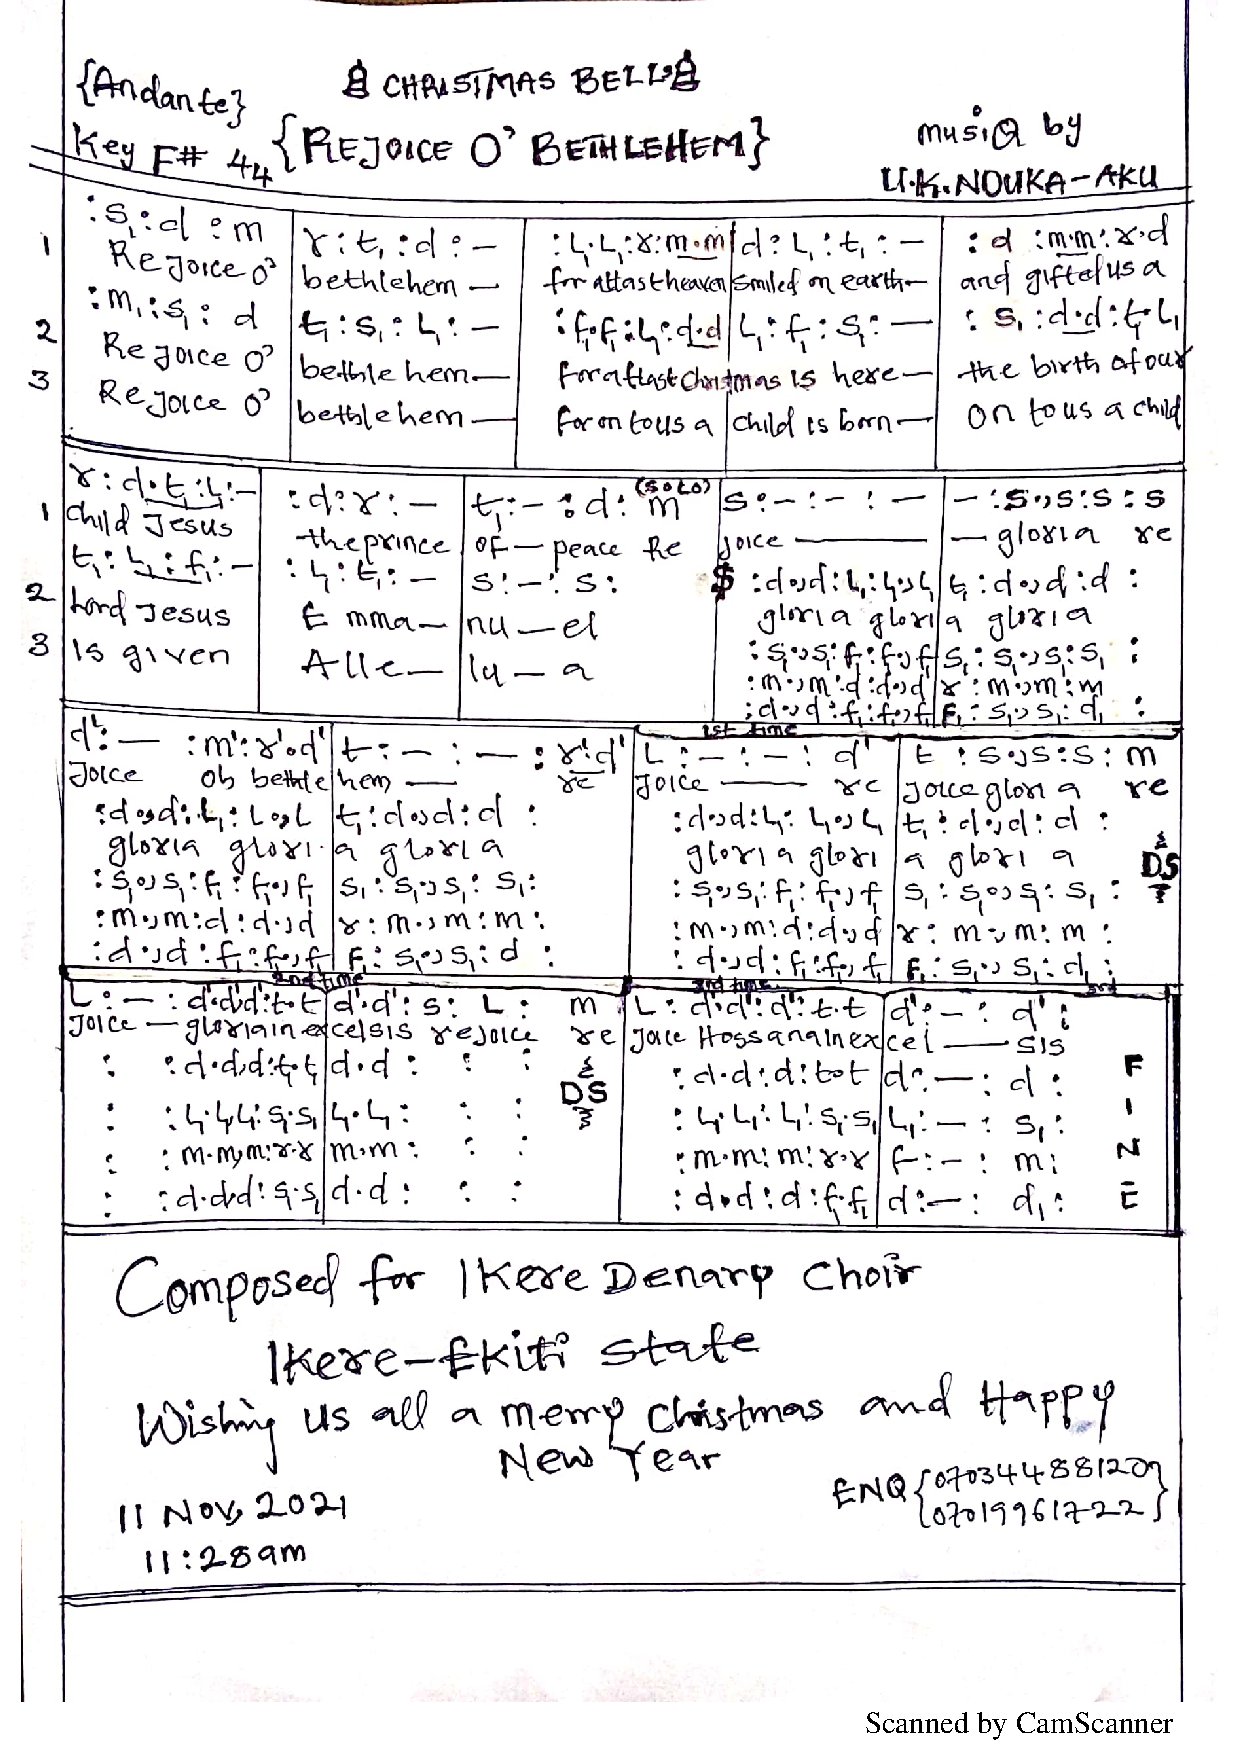 CHRISTMAS BELLS
{Andante}
Key F# 44 {REJOICE O' BETHLEHEM}
music by
U.K. NOUKA-AKU
:s₁:d :m | r:t₁:d:- | :L₁.L₁:r:m.m | d:L₁:t₁:- | :d :m.m:r.d
1 Rejoice O' bethlehem — for atlast heaven smiled on earth — and gifted us a
:m₁:s₁:d | t₁:s₁:L₁:- | :f₁.f₁:L₁:d.d | L₁:f₁:s₁:— | :s₁:d.d:t₁.L₁
2 Rejoice O' bethlehem — for atlast Christmas is here — the birth of our
3 Rejoice O' bethlehem — for on to us a child is born — On to us a child
r:d.t₁:L₁:- | :d:r:— | t₁:-:d: m (solo) | s:-:-:— | -:s.,s:s:s
1 child Jesus the prince of — peace Re joice — — gloria re
t₁:L₁:f₁:- | :L₁:t₁:- | s:-:s: | $ :d.,d:L₁:L₁.,L₁ | t₁:d.,d:d:
2 Lord Jesus Emma— nu — el gloria gloria gloria
3 is given Alle— lu — a
:s₁.,s₁:f₁:f₁.,f₁ | s₁:s₁.,s₁:s₁:
:m.,m:d:d.,d | r:m.,m:m
:d.,d:f₁:f₁.,f₁ | F₁:s₁.,s₁:d₁:
1st time
d':— :m':r'.d' | t:-:—:r'.d' | L:-:-:d' | t:s.,s:s:m
Joice Oh bethlehem — re joice — re joice gloria re
:d.,d:L₁:L.,L | t₁:d.,d:d: | :d.,d:L₁:L₁.,L₁ | t₁:d.,d:d:
gloria gloria gloria gloria gloria gloria DS
:s₁.,s₁:f₁:f₁.,f₁ | s₁:s₁.,s₁:s₁: | :s₁.,s₁:f₁:f₁.,f₁ | s₁:s₁.,s₁:s₁:
:m.,m:d:d.,d | r:m.,m:m: | :m.,m:d:d.,d | r:m.,m:m:
:d.,d:f₁:f₁.,f₁ | F₁:s₁.,s₁:d: | :d.,d:f₁:f₁.,f₁ | F₁:s₁.,s₁:d₁:
2nd time 3rd time 3rd
L:-:d'.d'.d':t.t | d'.d':s:L: m | L:d'.d':d':t.t | d':-:d':
Joice — gloria in excelsis rejoice re joice Hossana in excel — sis
: :d.d,d:t₁.t₁ | d.d: : : | :d.d:d:t.t | d:—:d:
: :L₁.L₁L₁:s₁.s₁ | L₁.L₁: : : | :L₁.L₁:L₁:s₁.s₁ | L₁:-:s₁:
: :m.m,m:r.r | m.m: : : | :m.m:m:r.r | f:-:m:
: :d.d,d:s₁.s₁ | d.d: : : | :d.d:d:f₁.f₁ | d:—:d₁:
DS
FINE
Composed for Ikere Denary Choir
Ikere-Ekiti state
Wishing us all a merry Christmas and Happy
New Year
ENQ {07034488120
07019961722}
11 Nov, 2021
11:28am
Scanned by CamScanner